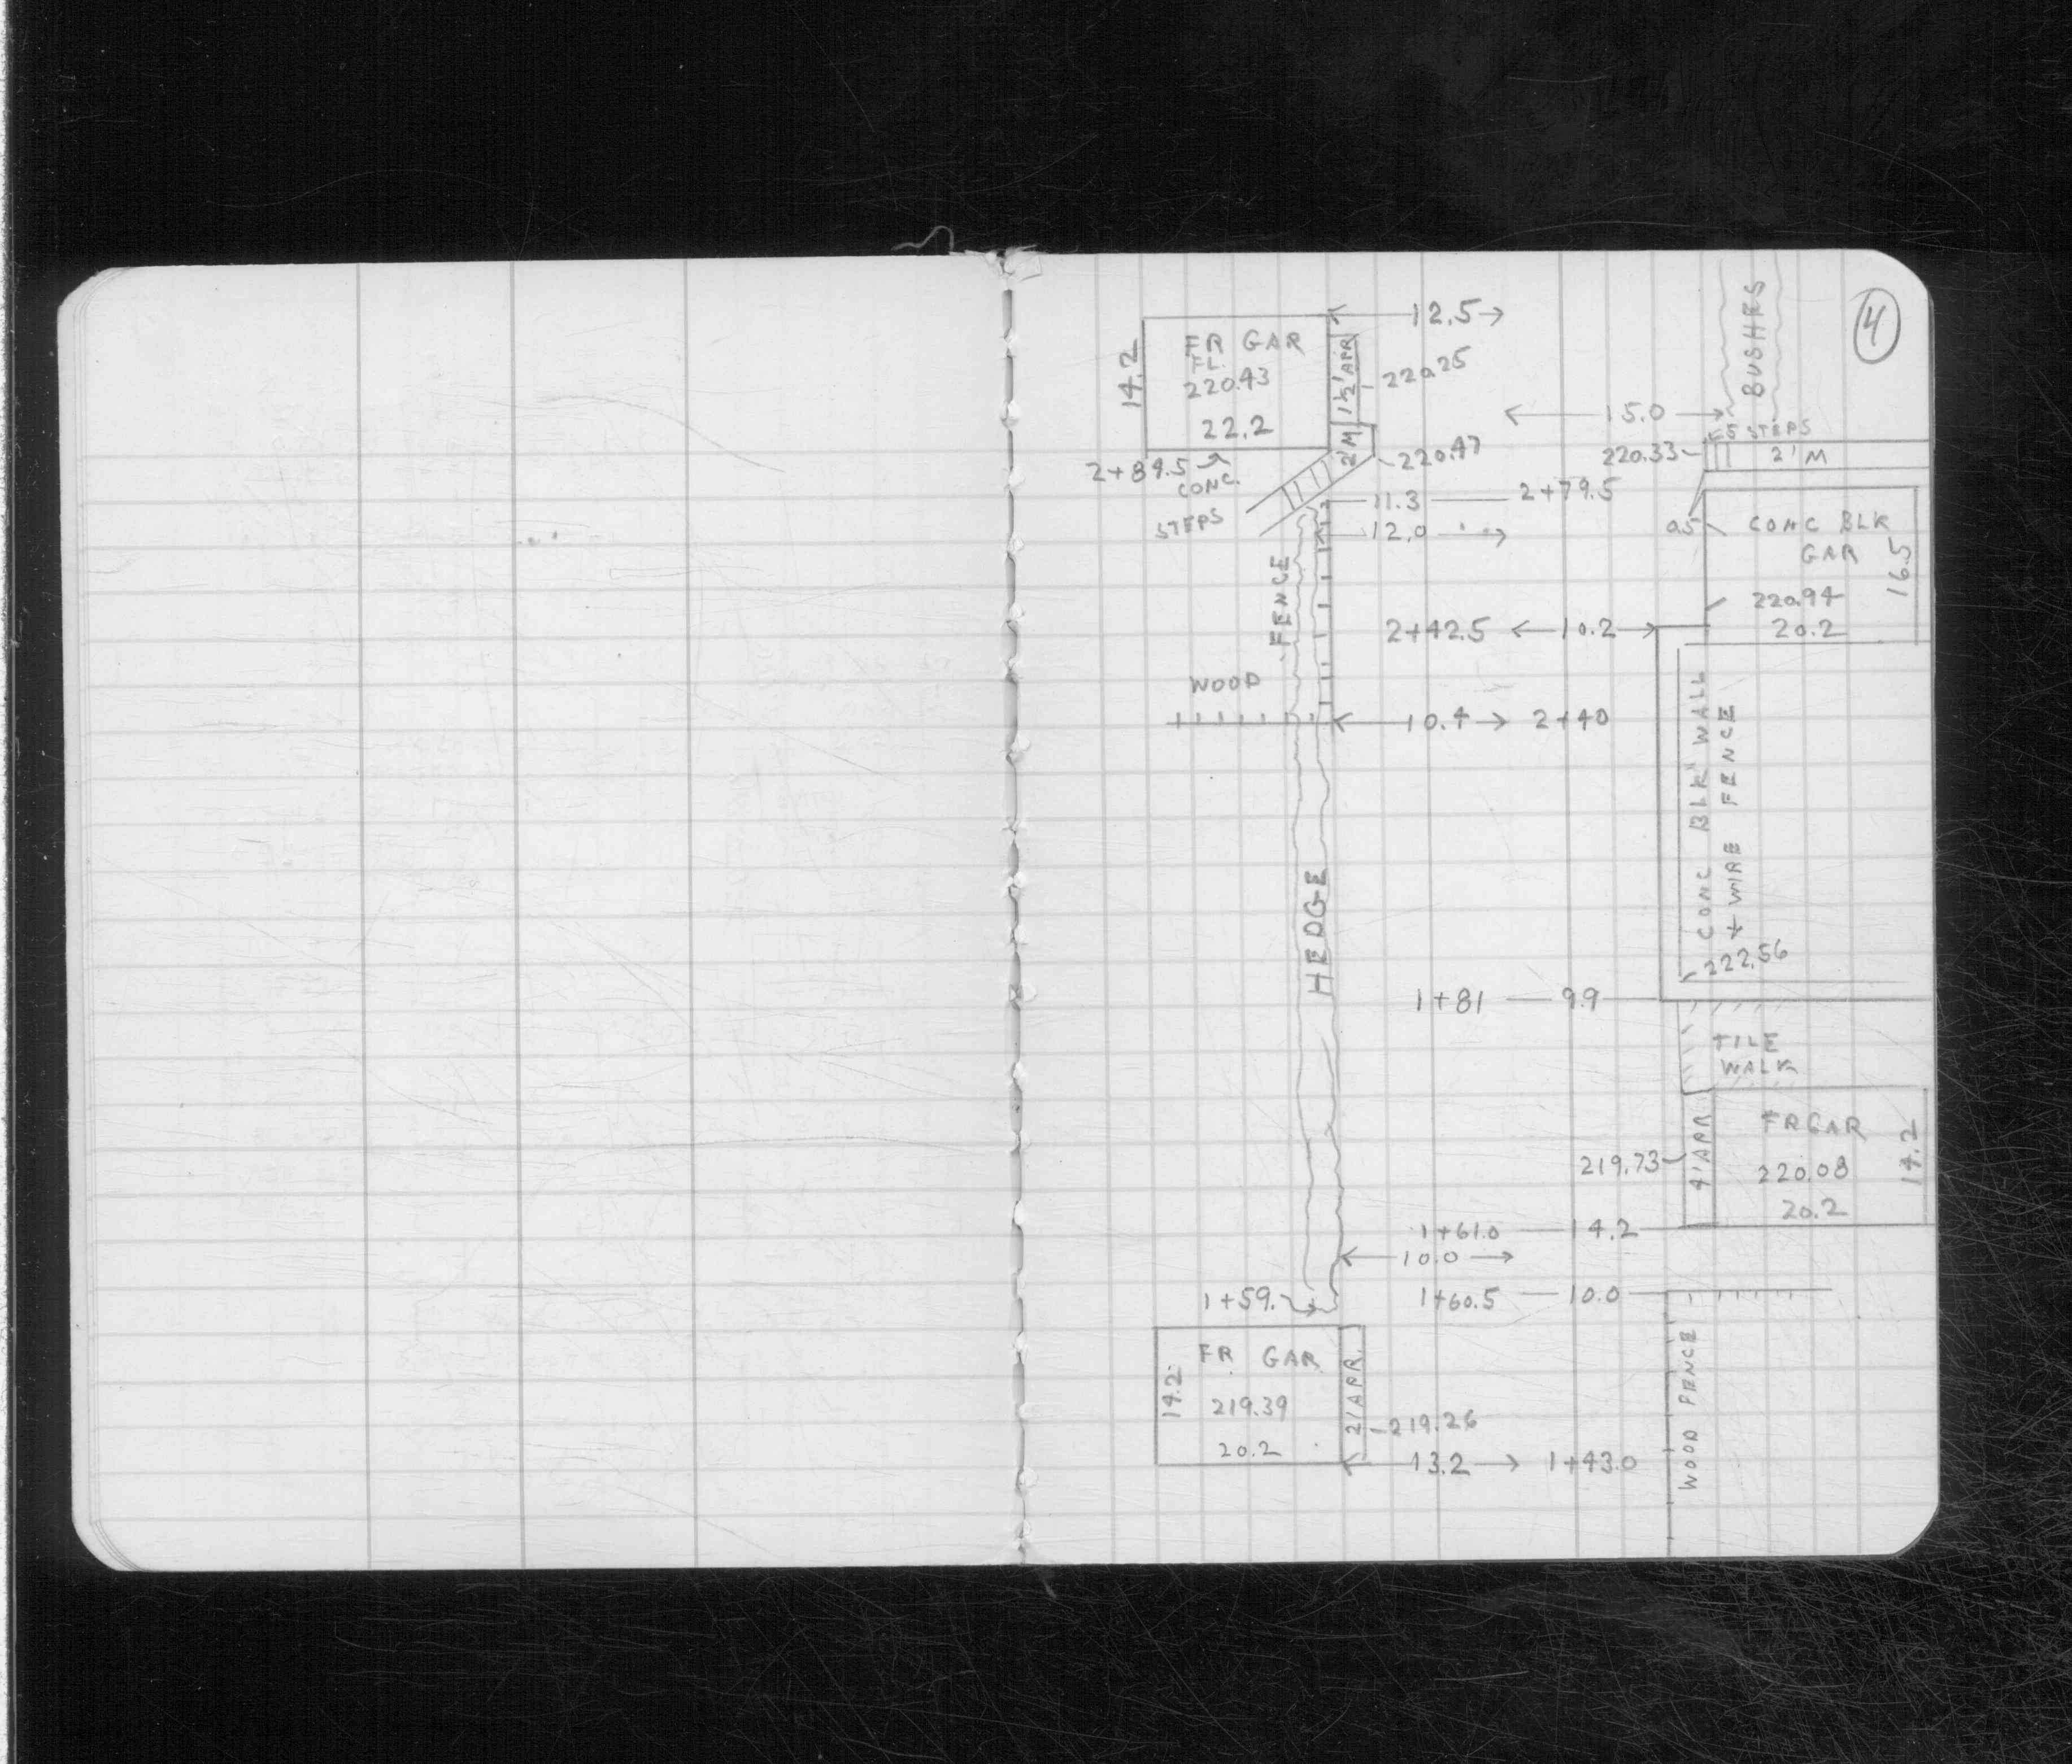 4
BUSHES
12.5
FR GAR
FL.
220.43
22.2
14.2
1½' APR
220.25
15.0
5 STEPS
2' M
220.33
2' M
220.47
2+84.5
CONC.
STEPS
11.3 2+79.5
12.0
0.5
CONC BLK
GAR
220.94
20.2
16.5
FENCE
2+42.5 10.2
WOOD
10.4 2+40
CONC BLK WALL
+ WIRE FENCE
222.56
HEDGE
1+81 9.9
TILE
WALK
FR GAR
220.08
20.2
14.2
4' APR
219.73
1+61.0 14.2
10.0
1+59.
1+60.5 10.0
FR GAR
219.39
20.2
14.2
2' APR.
219.26
13.2 1+43.0
WOOD FENCE